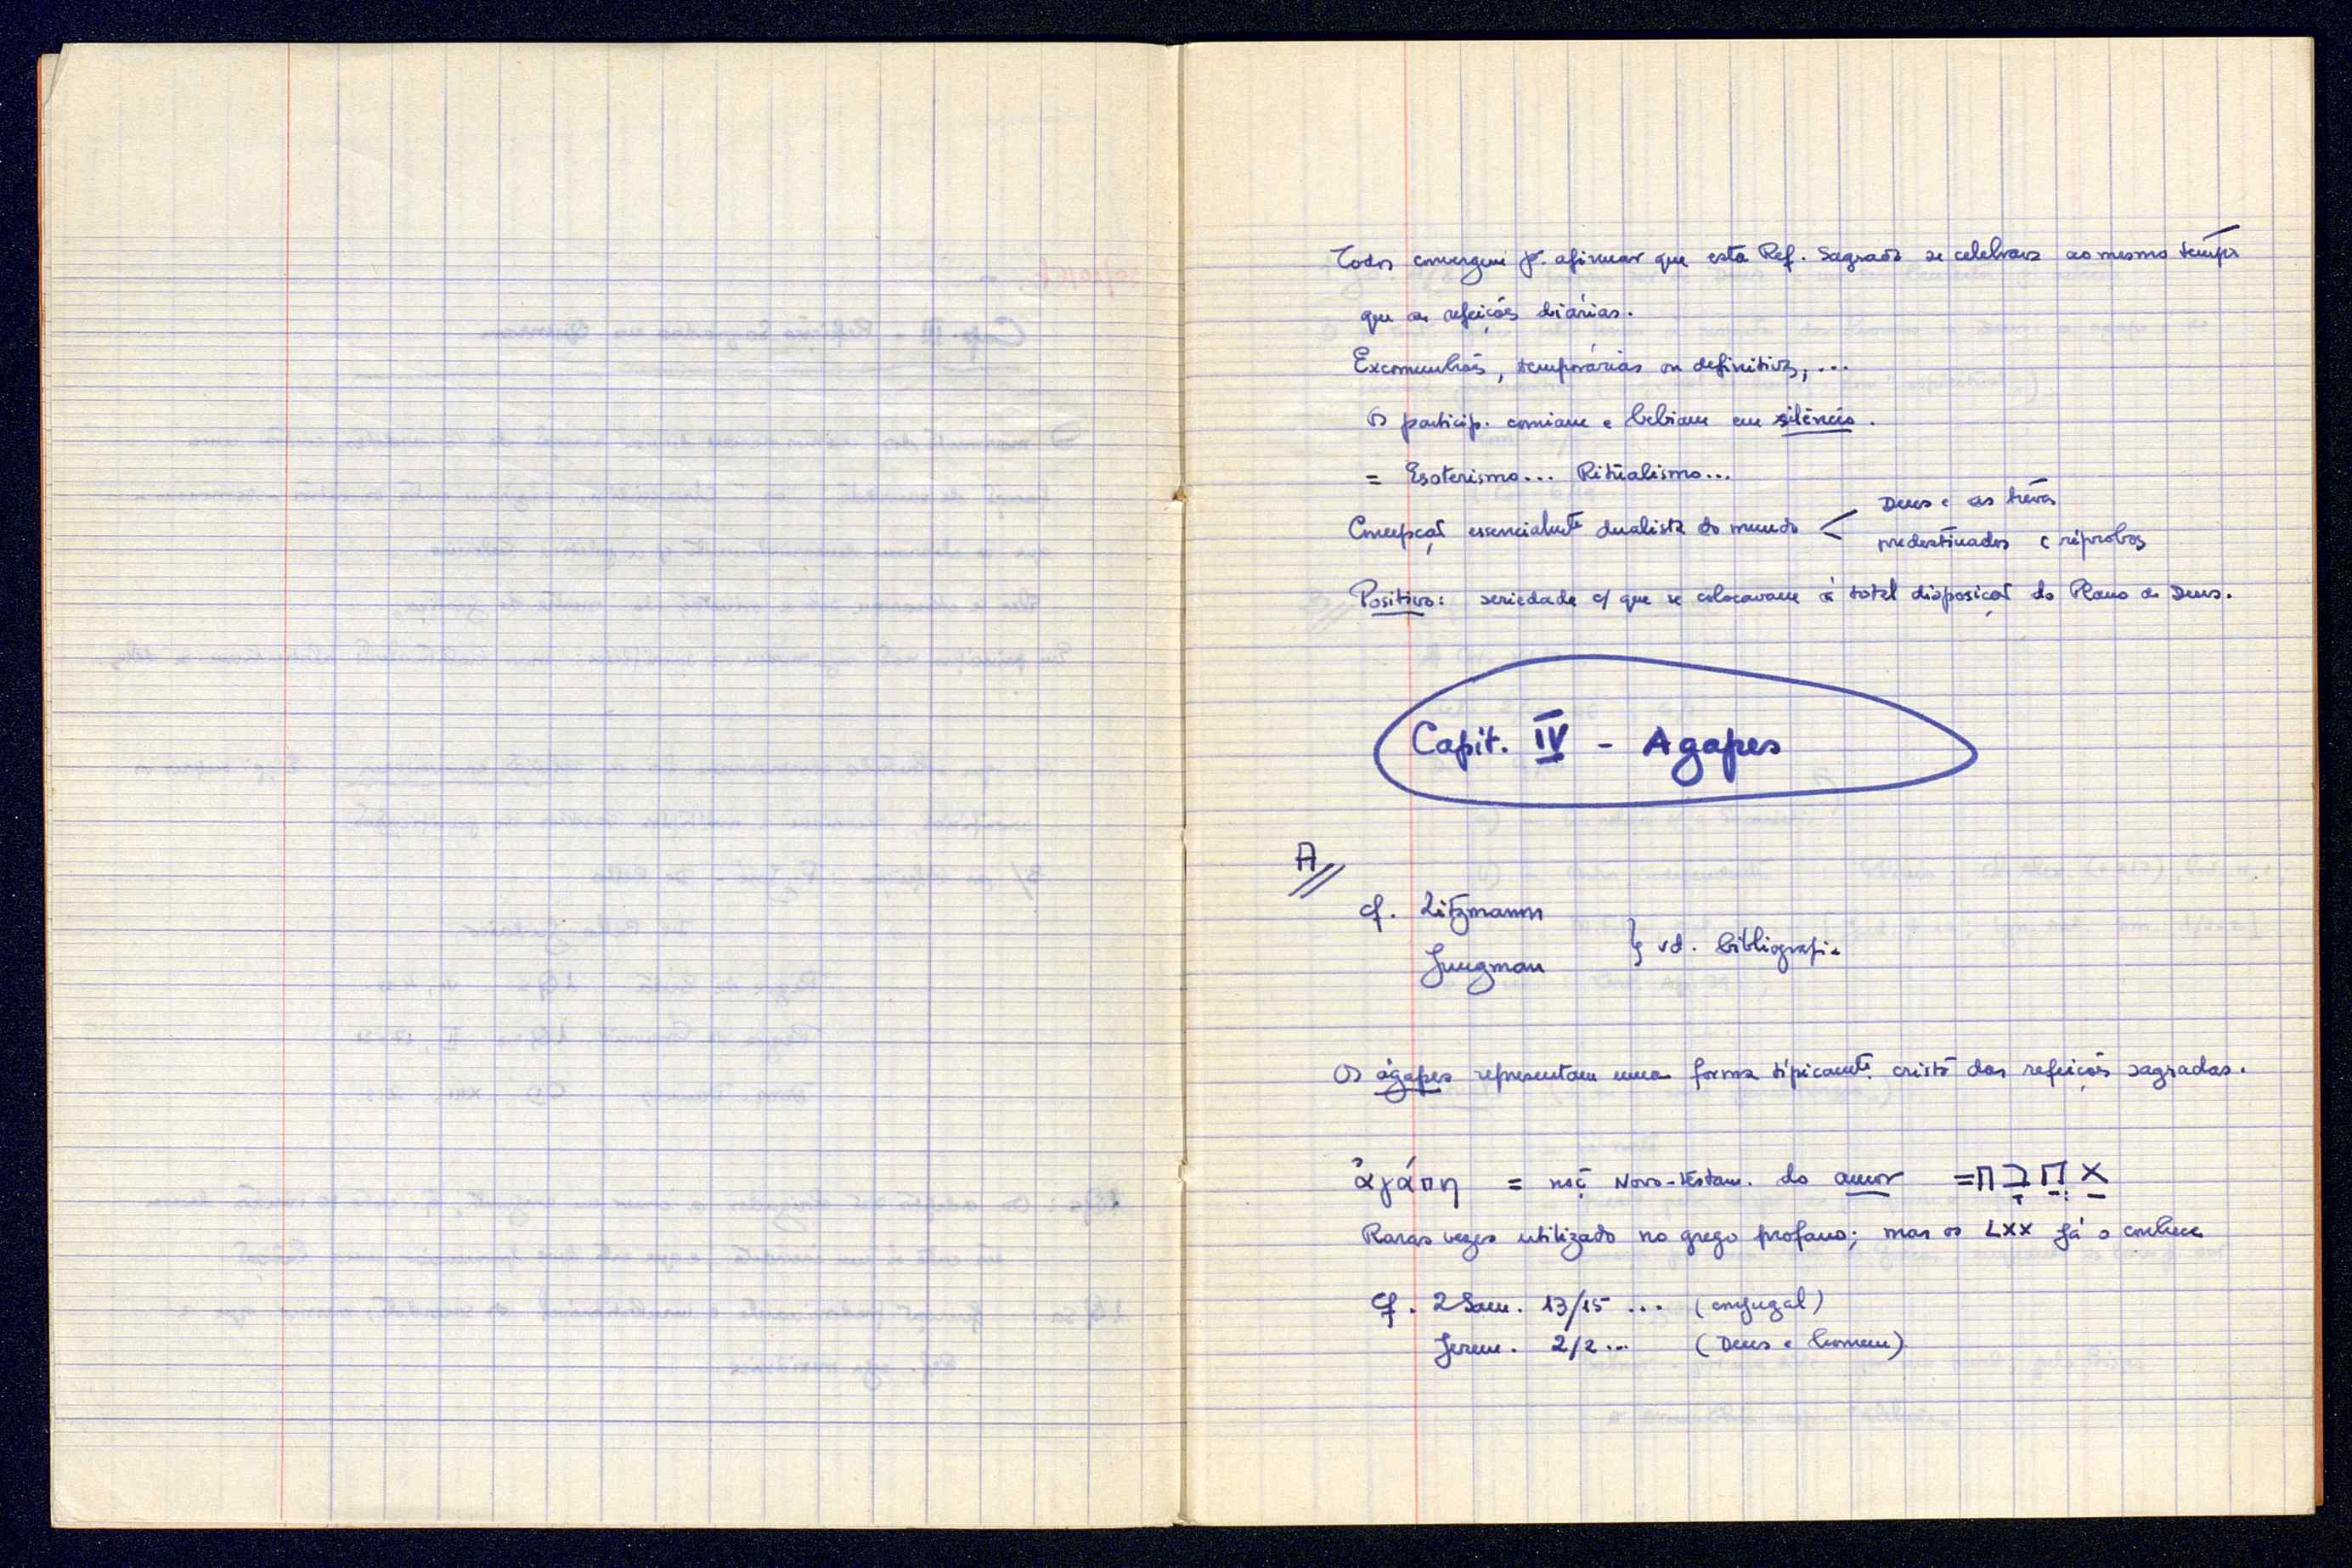 Todos convergem p. afirmar que esta Ref. Sagrada se celebrava ao mesmo tempo
que as refeições diárias.
Excomunhões, temporárias ou definitivas, ...
Os particip. comiam e bebiam em silêncio.
= Esoterismo... Ritualismo...
Deus e as trevas
Concepção essencialmte dualista do mundo <
predestinados e réprobos
Positivo: seriedade c/ que se colocavam à total disposição do Plano de Deus.
Capit. IV - Agapes
A//
cf. Litzmann
Jungman } vd. bibliografia
Os ágapes representam uma forma tìpicamte. cristã das refeições sagradas.
ἀγάπη = noç Novo-Testam. do amor = אַהֲבָה
Raras vezes utilizado no grego profano; mas os LXX já o conhece
Cf. 2 Sam. 13/15 ... (conjugal)
Jerem. 2/2... (Deus e homem)